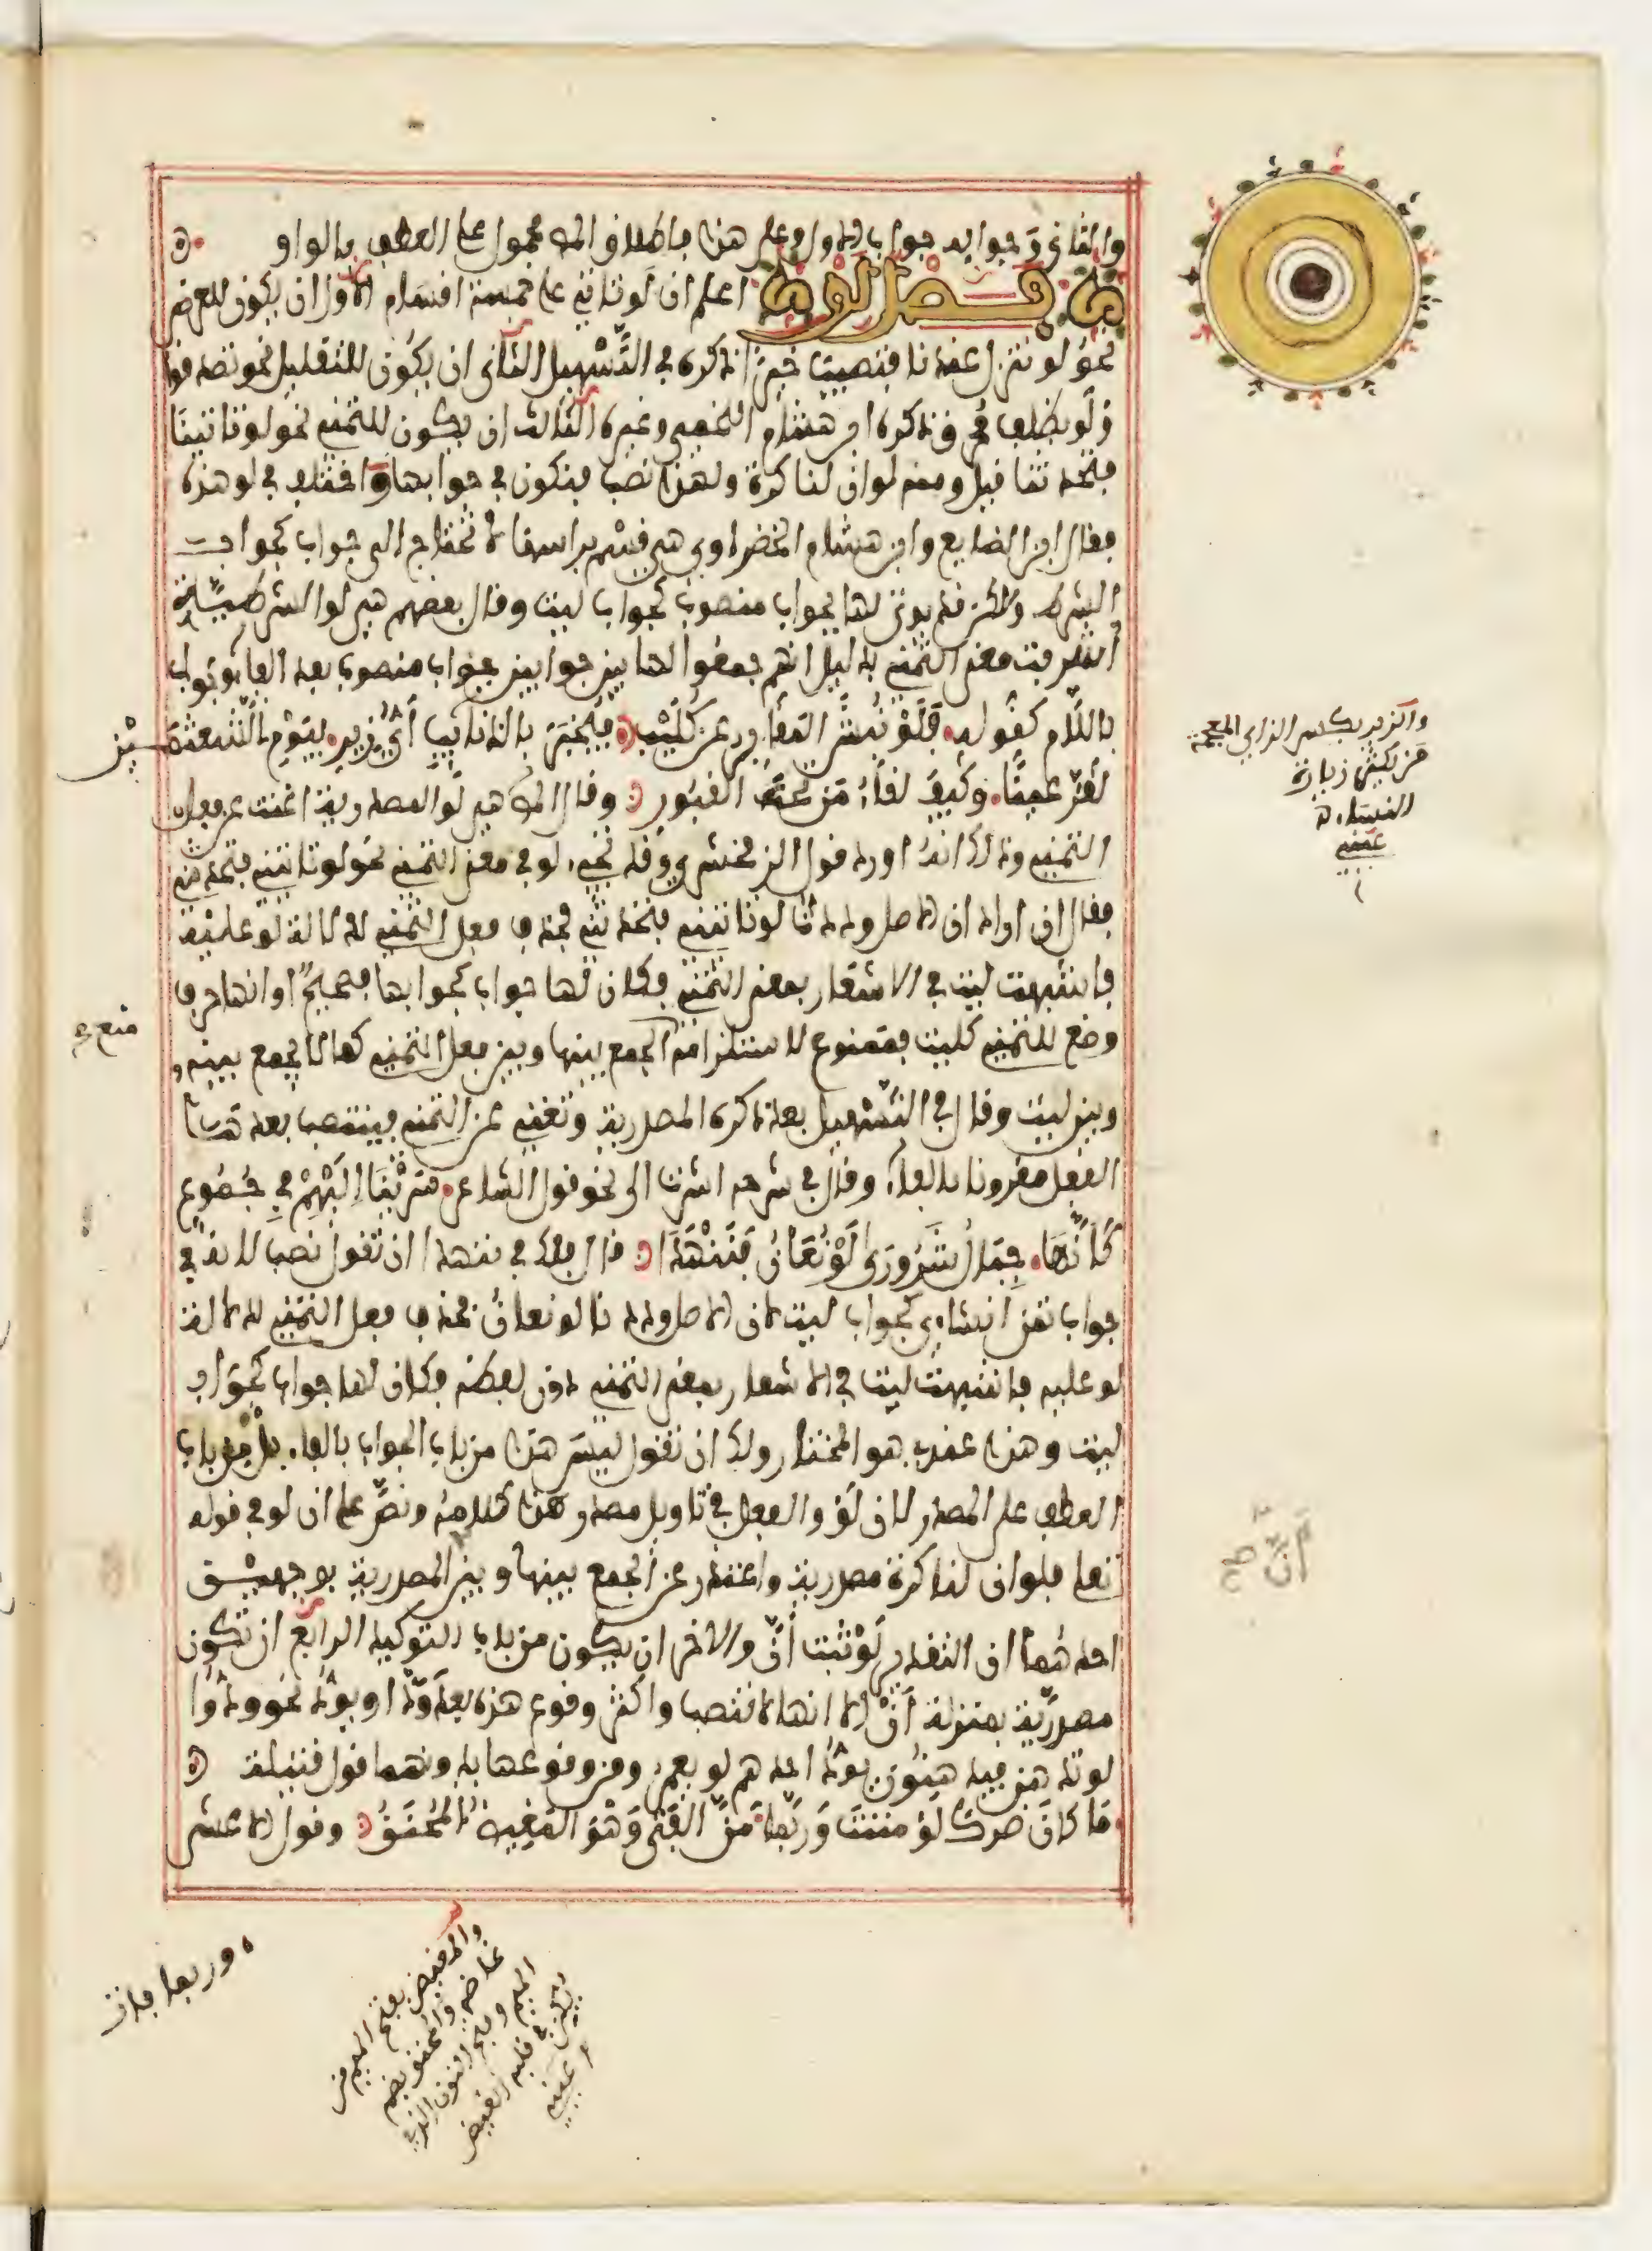 والثاني وجوابه جواب الاول وعلى هذا فاطلاق المص محمول على العطف بالواو
فصل لو اعلم ان لو تاتي على خمسة اقسام الاول ان يكون للعرض
نحو لو تنزل عندنا فتصيب خيرا ذكره في التسهيل الثاني ان يكون للتقليل نحو تصدقوا
ولو بظلف محرق ذكره ابن هشام اللخمي وغيره الثالث ان يكون للتمني نحو لو تاتينا
فتحدثنا قيل ومنه لو ان لنا كرة ولهذا نصب فنكون في جوابها واختلف في لو هذه
فقال ابن الضايع وابن هشام الخضراوي هي قسم براسها لا تحتاج الى جواب كجواب
الشرط ولكن قد يوتى لها بجواب منصوب كجواب ليت وقال بعضهم هي لو الشرطية
اشربت معنى التمني بدليل انهم جمعوا لها بين جوابين جواب منصوب بعد الفاء وجواب
باللام كقوله فلو نبش المقابر عن كليب فيخبر بالذنائب أي زير بيوم الشعثمين
لقر عينا وكيف لقاء من تحت القبور وقال المص هي لو المصدرية اغنت عن فعل
التمني وذلك انه اورد قول الزمخشري وقد تجيء لو في معنى التمني نحو لو تاتيني فتحدثني
فقال ان اراد ان الاصل وددت لو تاتيني فتحدثني فحذف فعل التمني لدلالة لو عليه
فاشبهت ليت في الاشعار بمعنى التمني فكان لها جواب كجوابها فصحيح او انها حرف
وضع للتمني كليت فممنوع لاستلزامه الجمع بينها وبين فعل التمني كما لا يجمع بينه و
وبين ليت وقال في التسهيل بعد ذكره المصدرية وتغني عن التمني فينتصب بعدها
الفعل مقرونا بالفاء وقال في شرحه اشرت الى نحو قول الشاعر سرينا اليهم في جموع
كأنها جبال شرورى لو تعان فتنهدا قال فلك في تنهدا ان تقول نصب لانه في
جواب تمن انشاءي كجواب ليت لان الاصل وددنا لو نعان فحذف فعل التمني لدلالة
لو عليه فاشبهت ليت في الاشعار بمعنى التمني دون لفظه فكان لها جواب كجواب
ليت وهذا عندي هو المختار ولك ان تقول ليس هذا من باب الجواب بالفاء بل من باب
العطف على المصدر لان لو والفعل في تاويل مصدر هذا كلامه ونص على ان لو في قوله
تعلى فلو ان لنا كرة مصدرية واعتذر عن الجمع بينها وبين المصدرية بوجهين
احدهما ان التقدير لو ثبت أن والاخر ان يكون من باب التوكيد الرابع ان تكون
مصدرية بمنزلة أن الا انها لا تنصب واكثر وقوع هذه بعد ود او يود نحو ودوا
لو تدهن فيدهنون يود احدهم لو يعمر ومن وقوعها بدونهما قول قتيلة
ما كان ضرك لو مننت وربما من الفتى وهو المغيظ المحنق وقول الاعشى
ين
منع
والزير بكسر الزاي المعجمة
من يكثر زيارة
النساء
عيني
وربما فات
والمغيظ بفتح الميم من
غاظه والمحنق بضم
الميم وفتح النون الذي
يكن في قلبه الغيض
عيني